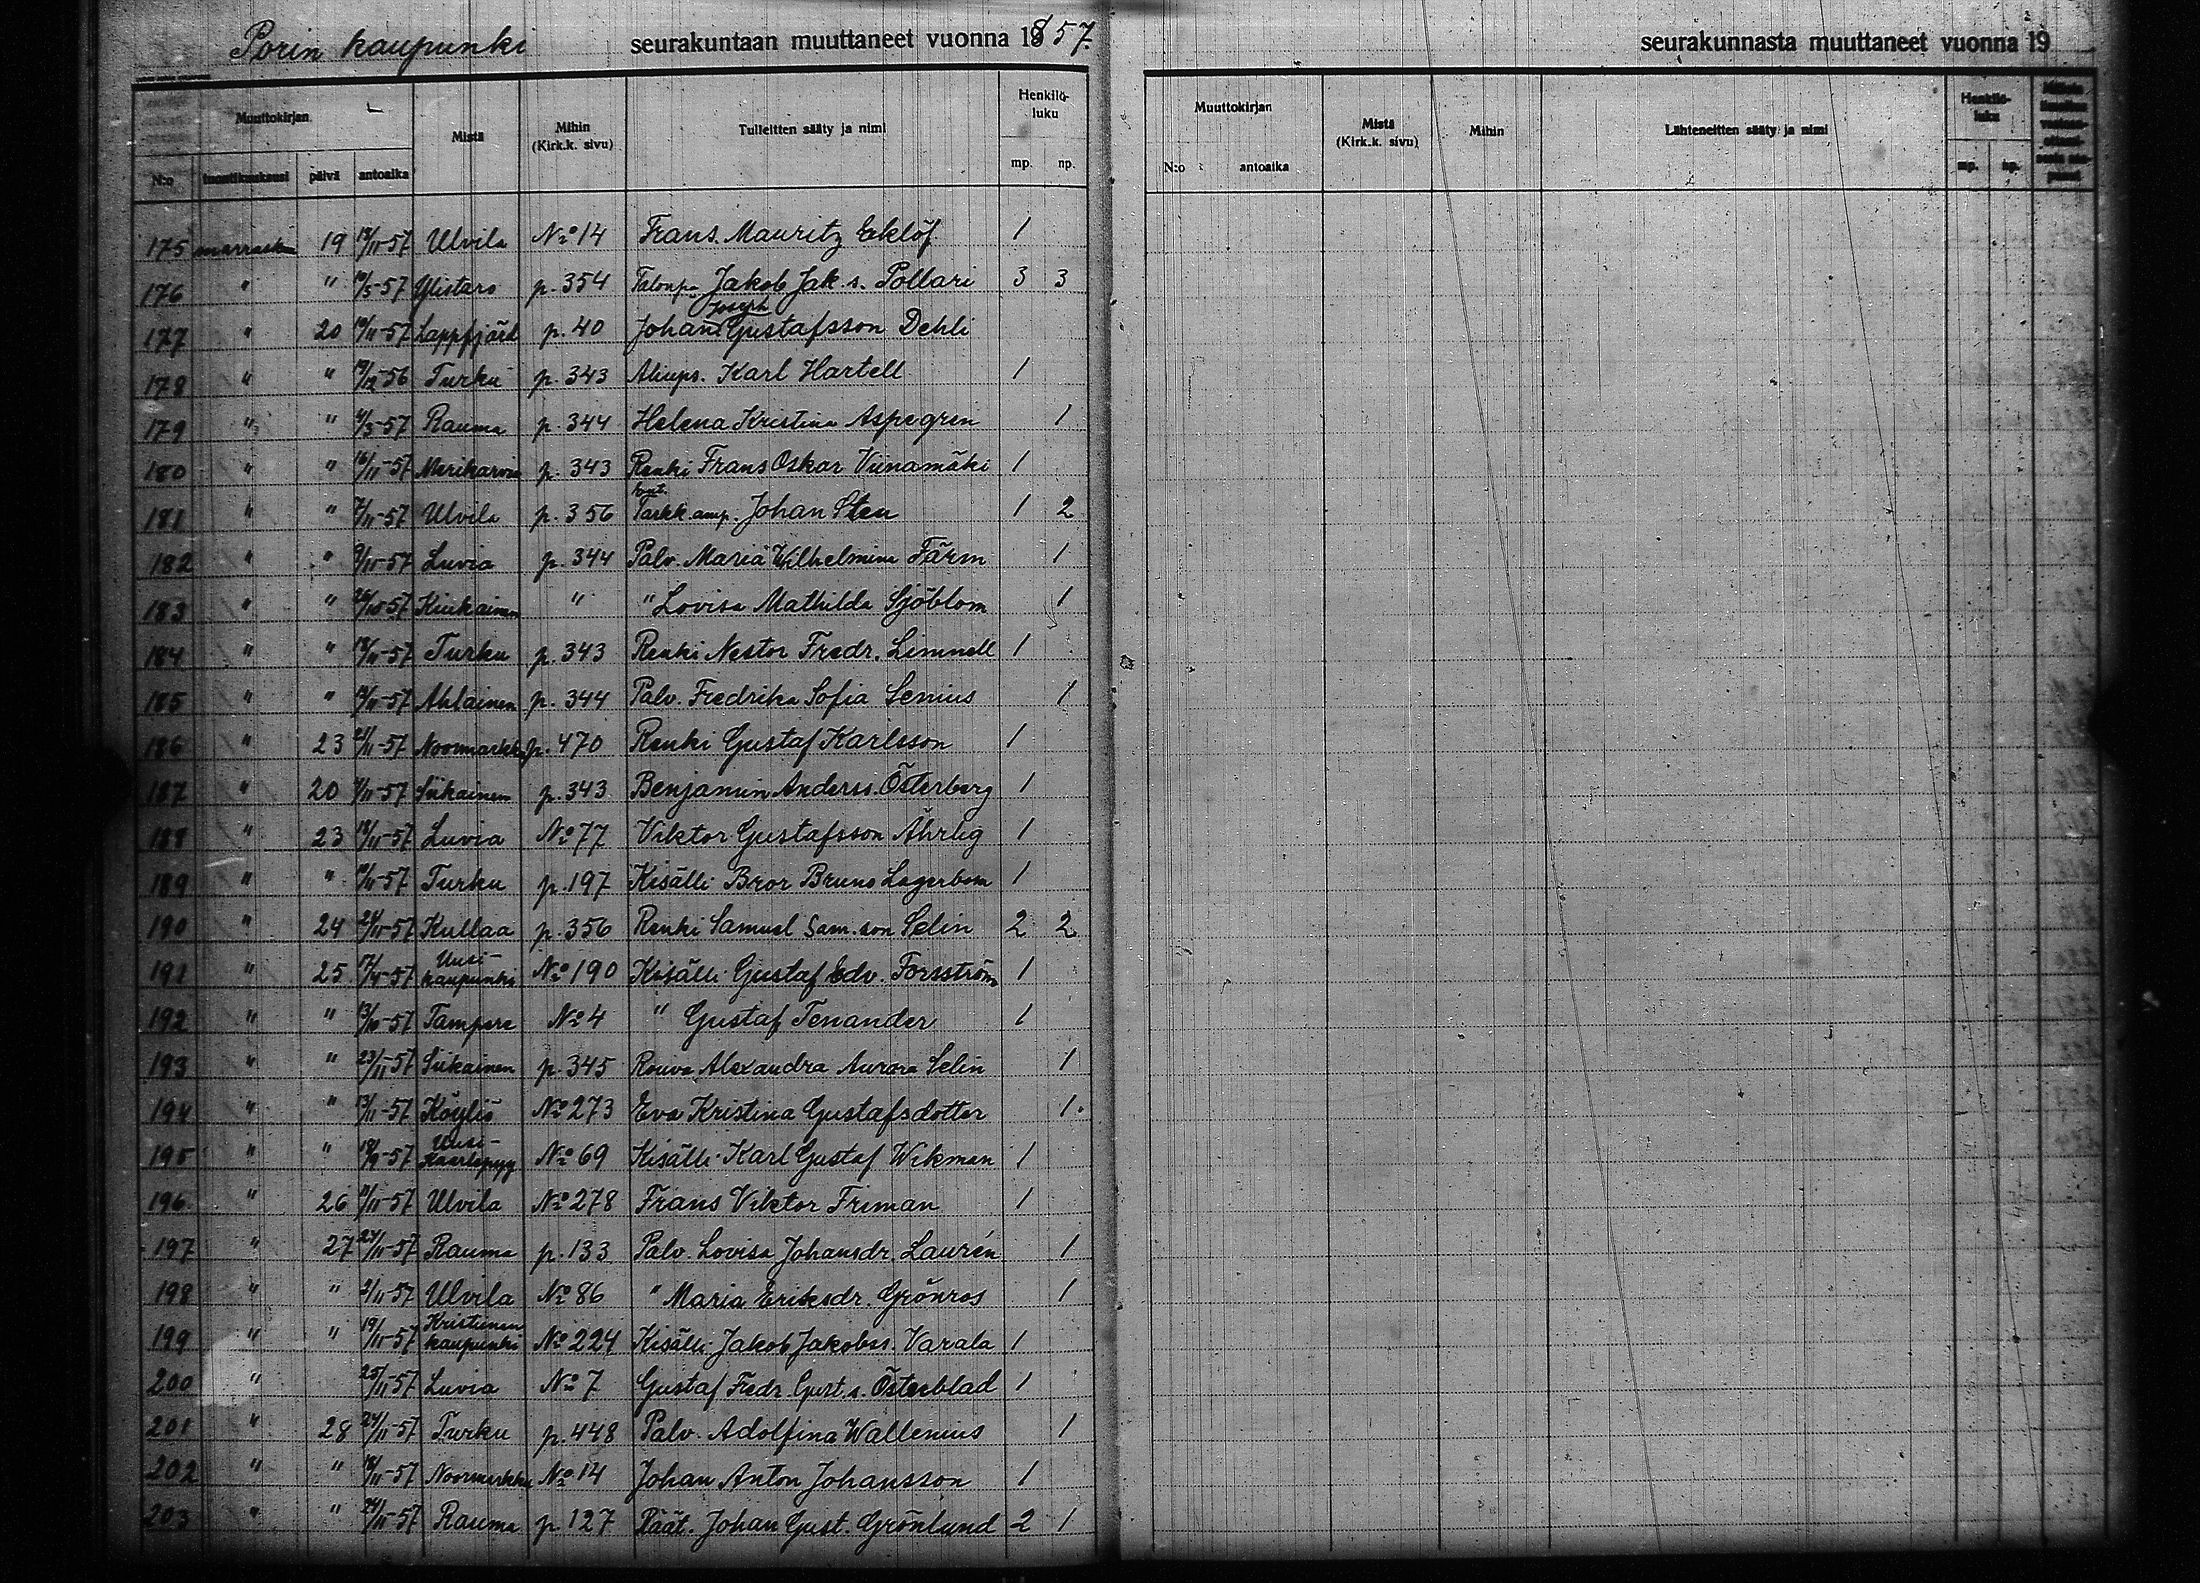 Porin kaupunki seurakuntaan muuttaneet vuonna 1857.
seurakunnasta muuttaneet vuonna 19
Muuttokirjan Mistä Mihin (Kirk.k. sivu) Tulleitten sääty ja nimi Henkilö-luku
N:o päivä antoaika mp. np.
Muuttokirjan Mistä (Kirk.k. sivu) Mihin Lähteneitten sääty ja nimi Henkilö-luku
N:o antoaika mp. np.
175 marraskuu 19 18/11-57 Ulvila No 14 Frans Mauritz Eklöf 1
176 " " 10/5-57 Ylistaro p. 354 Talonp. Jakob Jak. s. Pollari 3 3
Joseph
177 " 20 10/11-57 Lappfjärd p. 40 Johan Gustafsson Dehli
178 " " 19/12-56 Turku p. 343 Aliups. Karl Hartell 1
179 " " 4/5-57 Rauma p. 344 Helena Kristina Aspegren 1
180 " " 16/11-57 Merikarvia p. 343 Renki Frans Oskar Viinamäki 1
181 " " 7/11-57 Ulvila p. 356 Tarkk.amp. Johan Sten 1 2
182 " " 9/11-57 Luvia p. 344 Palv. Maria Wilhelmina Färm 1
183 " " 24/10-57 Kiukainen " " Lovisa Mathilda Sjöblom 1
184 " " 18/11-57 Turku p. 343 Renki Nestor Fredr. Limnell 1
185 " " 12/11-57 Ahlainen p. 344 Palv. Fredrika Sofia Senius 1
186 " 23 21/11-57 Noormarkku p. 470 Renki Gustaf Karlsson 1
187 " 20 7/11-57 Siikainen p. 343 Benjamin Anderss. Österberg 1
188 " 23 18/11-57 Luvia No 77 Viktor Gustafsson Ährlig 1
189 " " 10/11-57 Turku p. 197 Kisälli Bror Bruno Lagerbom 1
190 " 24 24/11-57 Kullaa p. 356 Renki Samuel Sam.son Selin 2 2
191 " 25 17/4-57 Uusi-kaupunki No 190 Kisälli Gustaf Edv. Forsström 1
192 " " 13/10-57 Tampere No 4 " Gustaf Tenander 1
193 " " 23/11-57 Siikainen p. 345 Rouva Alexandra Aurora Selin 1
194 " " 13/11-57 Köyliö No 273 Eva Kristina Gustafsdotter 1.
195 " " 18/9-57 Uusi-Kaarlepyy No 69 Kisälli Karl Gustaf Wikman 1
196 " 26 11/11-57 Ulvila No 278 Frans Viktor Friman 1
197 " 27 24/11-57 Rauma p. 133 Palv. Lovisa Johansdr. Laurén 1
198 " " 2/11-57 Ulvila No 86 " Maria Eriksdr. Grönros 1
199 " " 19/11-57 Kristiinankaupunki No 224 Kisälli Jakob Jakobss. Varala 1
200 " 25/11-57 Luvia No 7 Gustaf Fredr. Gust. s. Österblad 1
201 " 28 24/11-57 Turku p. 448 Palv. Adolfina Wallenius 1
202 " " 18/11-57 Noormarkku No 14 Johan Anton Johansson 1
203 " " 24/11-57 Rauma p. 127 Räät. Johan Gust. Grönlund 2 1